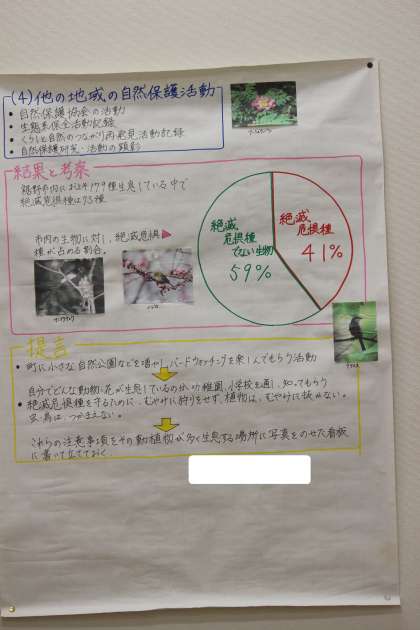 (4)他の地域の自然保護活動
• 自然保護協会の活動
• 生態系保全活動記録
• くらしと自然のつながり再発見活動記録
• 自然保護研究・活動の顕彰
結果と考察
179種生息している中で
絶滅危惧種は73種
市内の生物に対し、絶滅危惧
種が占める割合。
絶滅
危惧種
でない生物
59%
絶滅
危惧種
41%
提言
• 町に小さな自然公園などを増やし、バードウォッチングを楽しんでもらう活動
自分でどんな動物、花が生息しているのか幼稚園、小学校を通し、知ってもらう
• 絶滅危惧種を守るために、むやみに狩りをせず、植物は、むやみに抜かない。
鳥は、つかまえない。
これらの注意事項をその動植物が多く生息する場所に写真をのせた看板
に書いて立てておく